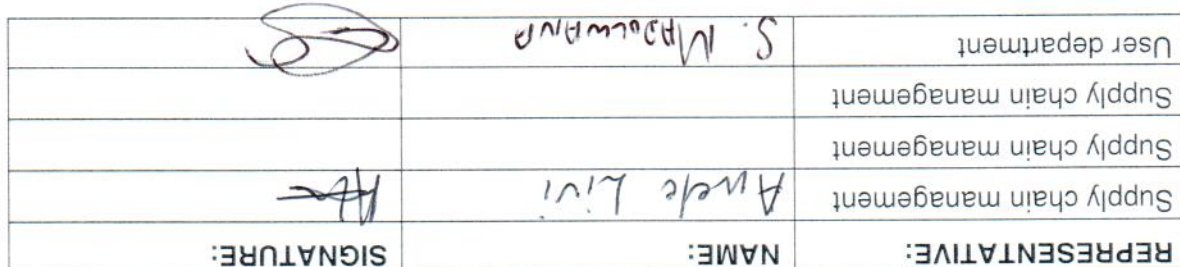 REPRESENTATIVE: NAME: SIGNATURE:
Supply chain management Awele Livi
Supply chain management
Supply chain management
User department S.